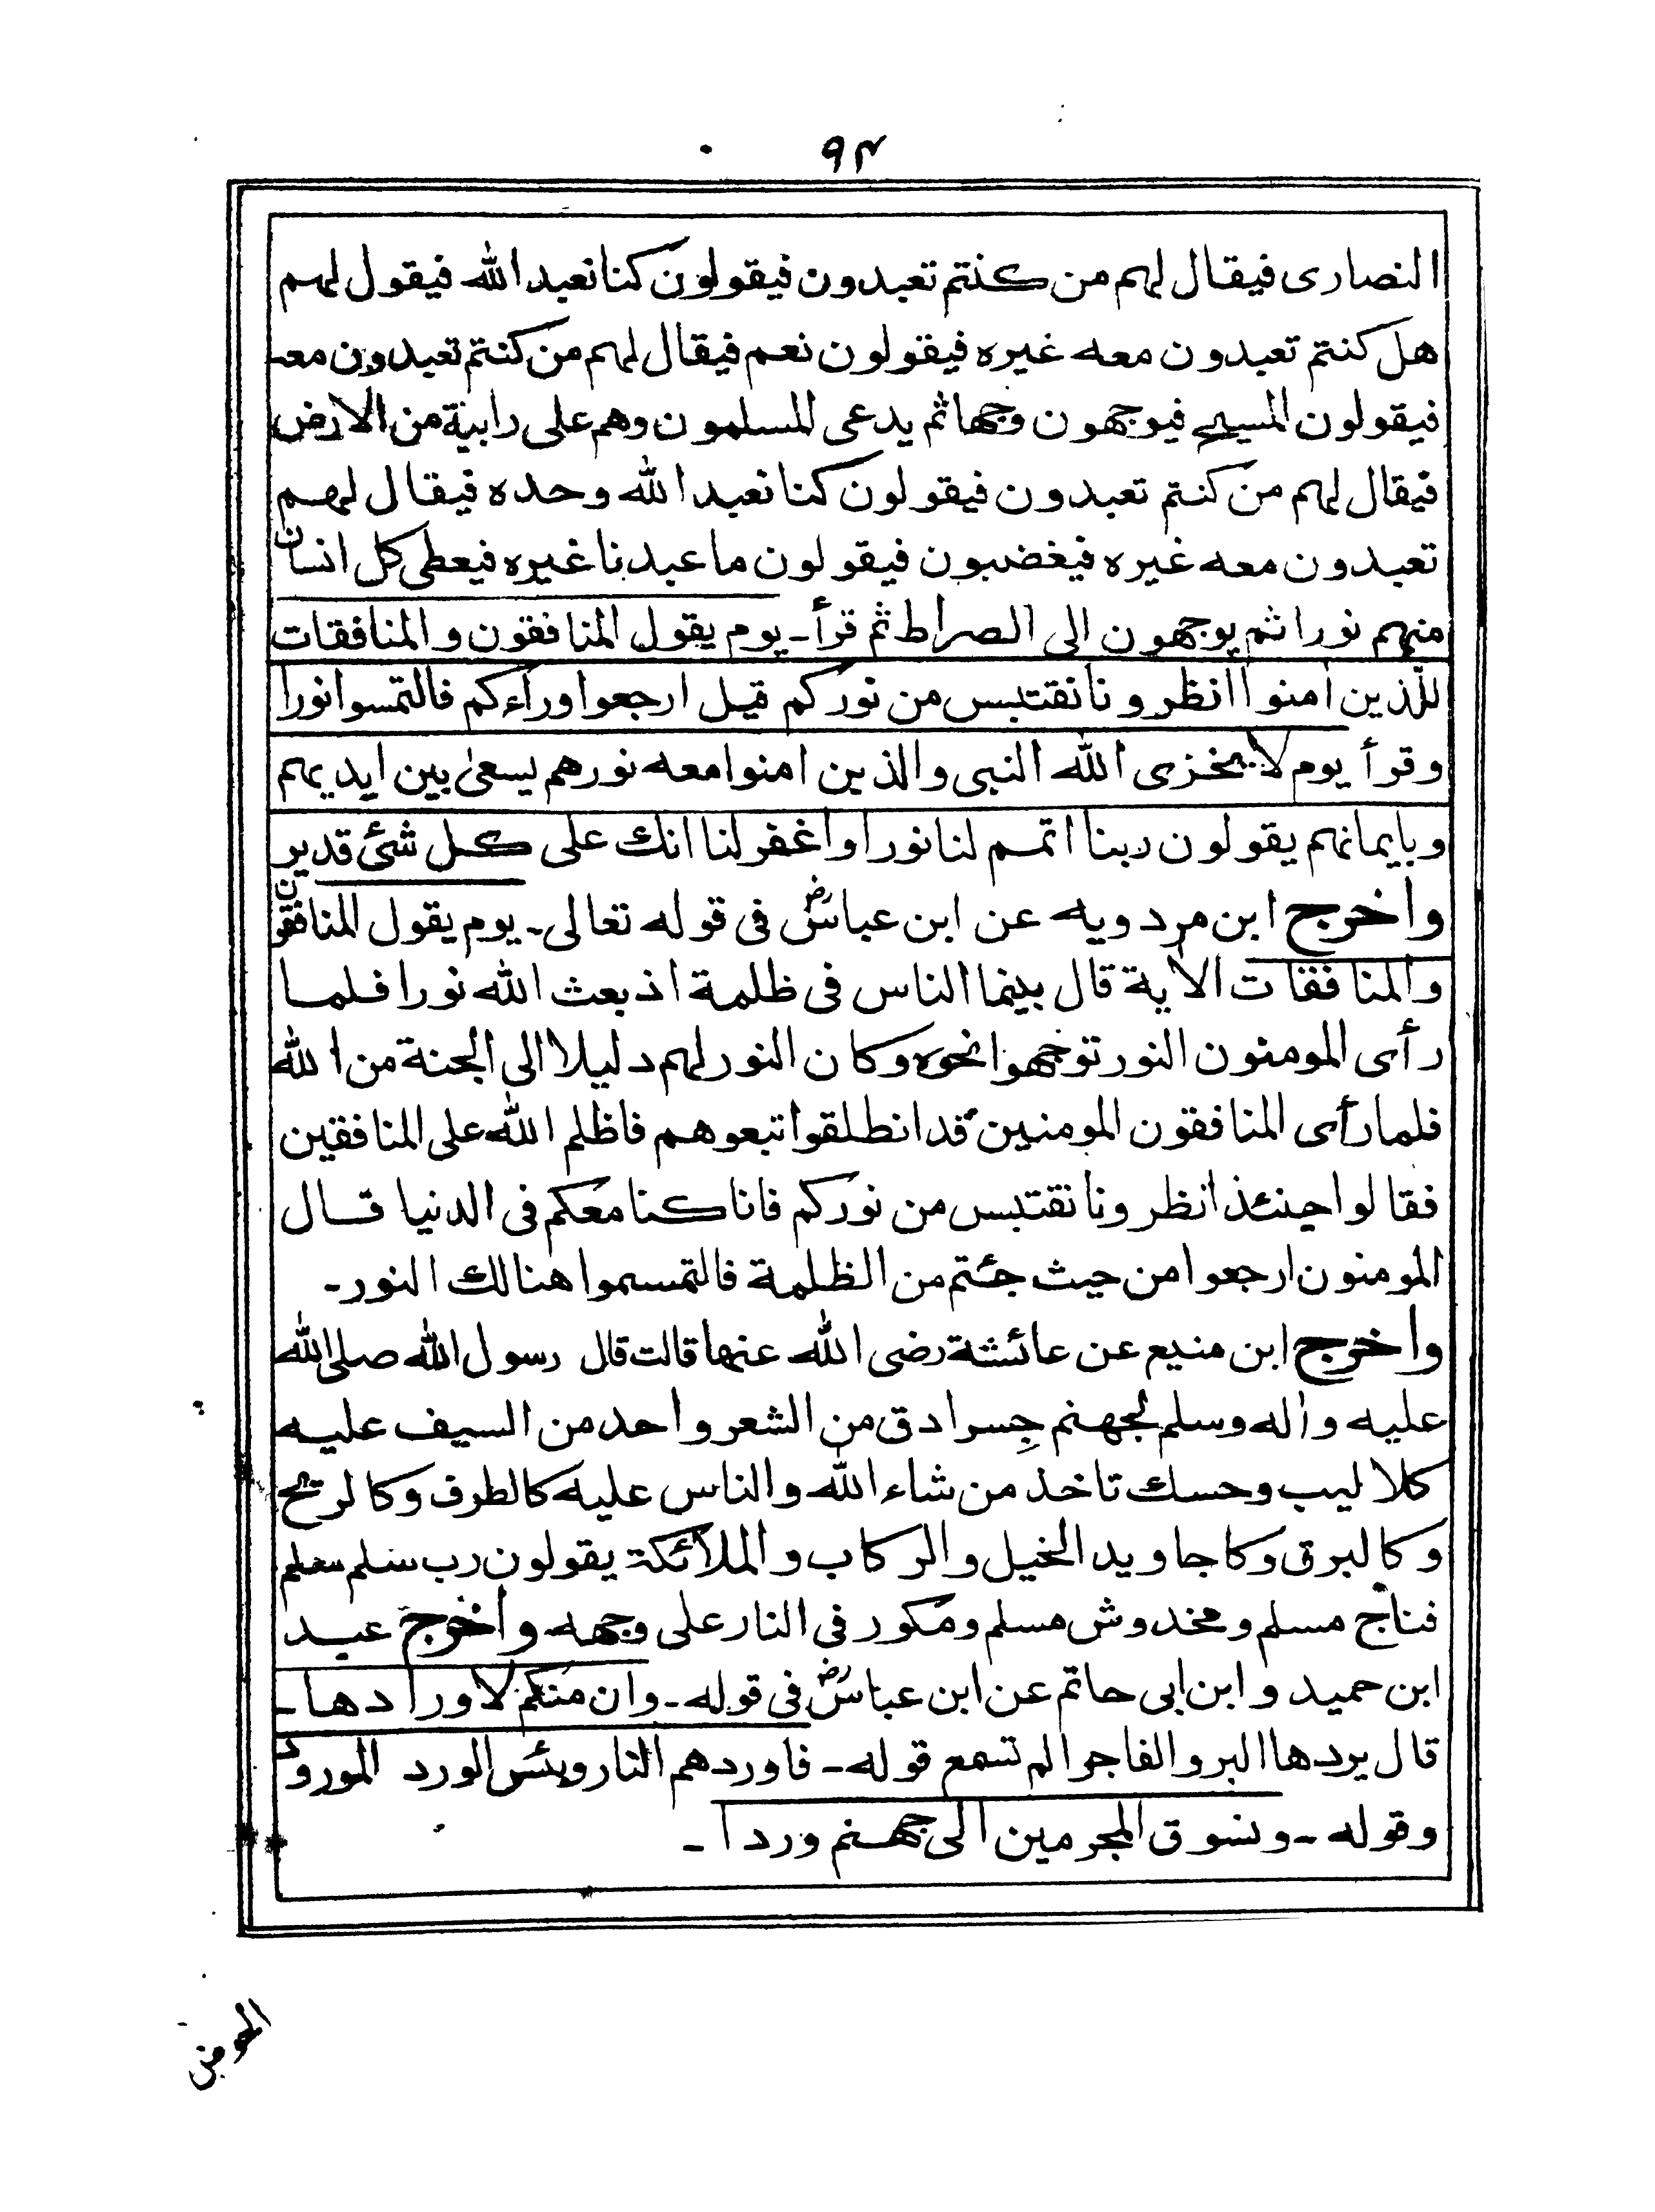 ۹۴
النصارى فيقال لهم من كنتم تعبدون فيقولون كنا نعبد الله فيقول لهم
هل كنتم تعبدون معه غيره فيقولون نعم فيقال لهم من كنتم تعبدون معه
فيقولون المسيح فيوجهون وجها ثم يدعى المسلمون وهم على رابية من الارض
فيقال لهم من كنتم تعبدون فيقولون كنا نعبد الله وحده فيقال لهم
تعبدون معه غيره فيغضبون فيقولون ما عبدنا غيره فيعطى كل انسان
منهم نورا ثم يوجهون الى الصراط ثم قرأ۔ يوم يقول المنافقون والمنافقات
للذين امنوا انظرونا نقتبس من نوركم قيل ارجعوا وراءكم فالتمسوا نورا
وقرأ يوم لا يخزى الله النبى والذين امنوا معه نورهم يسعىٰ بين ايديهم
وبايمانهم يقولون ربنا اتمم لنا نورا واغفر لنا انك على كل شئ قدير
واخرج ابن مردويه عن ابن عباسؓ فى قوله تعالى۔ يوم يقول المنافقون
والمنافقات الاية قال بينما الناس فى ظلمة اذ بعث الله نورا فلما
رأى المومنون النور توجهوا نحوه وكان النور لهم دليلا الى الجنة من الله
فلما رأى المنافقون المومنين قد انطلقوا تبعوهم فاظلم الله على المنافقين
فقالوا حينئذ انظرونا نقتبس من نوركم فانا كنا معكم فى الدنيا قال
المومنون ارجعوا من حيث جئتم من الظلمة فالتمسموا هنالك النور۔
واخرج ابن منيع عن عائشة رضى الله عنها قالت قال رسول الله صلى الله
عليه واله وسلم لجهنم جِسر ادق من الشعر واحد من السيف عليه
كلاليب وحسك تاخذ من شاء الله والناس عليه كالطرف وكالريح
وكالبرق وكاجاويد الخيل والركاب والملائكة يقولون رب سلم سلم
فناج مسلم ومخدوش مسلم ومكور فى النار على وجهه واخرج عبد
ابن حميد وابن ابى حاتم عن ابن عباسؓ فى قوله۔ وان منكم لا وراد ها۔
قال يردها البر والفاجر الم تسمع قوله۔ فاوردهم النار وبئس الورد المورود
وقوله۔ ونسوق المجرمين الى جهنم وردا۔
الحوض